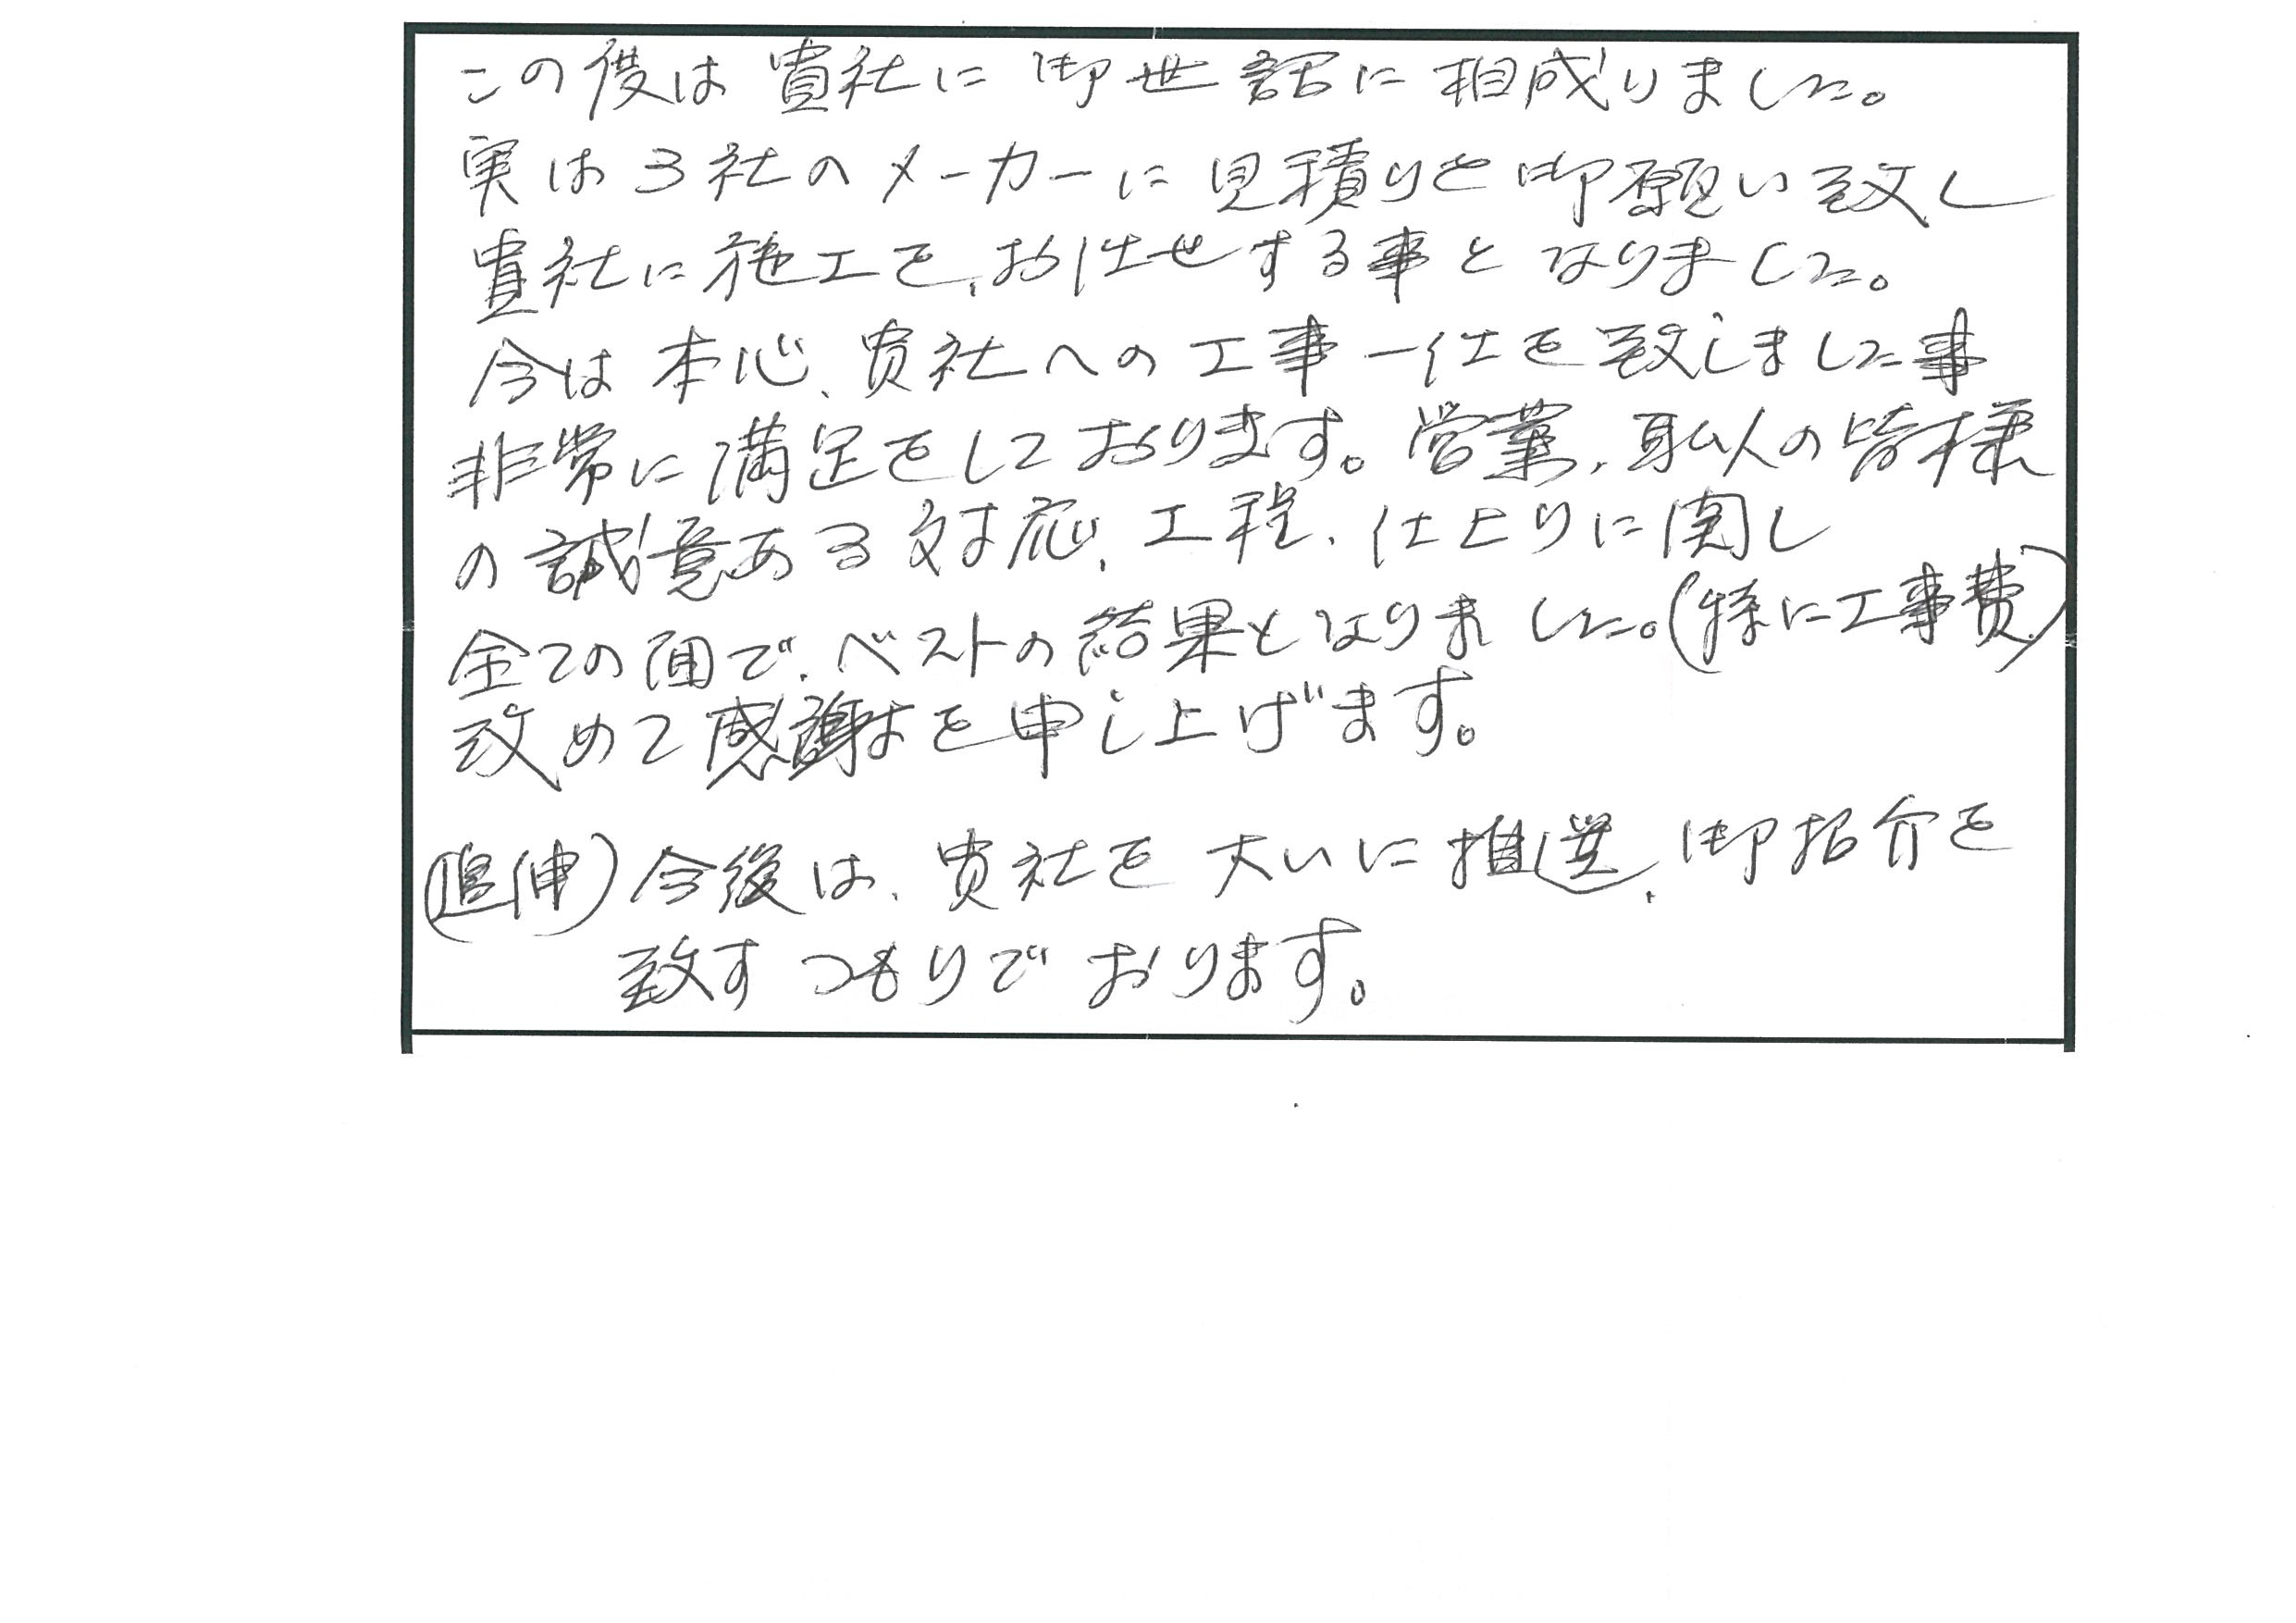 この度は貴社に御世話に相成りました。
実は3社のメーカーに見積りを御願い致し
貴社に施工を、お任せする事となりました。
今は本心、貴社への工事一任を致しました事
非常に満足をしております。営業、職人の皆様
の誠意ある対応、工程、仕上りに関し
全ての面で、ベストの結果となりました。(特に工事費)
改めて感謝を申し上げます。
(追伸)今後は、貴社を大いに推選、御招介を
致すつもりでおります。